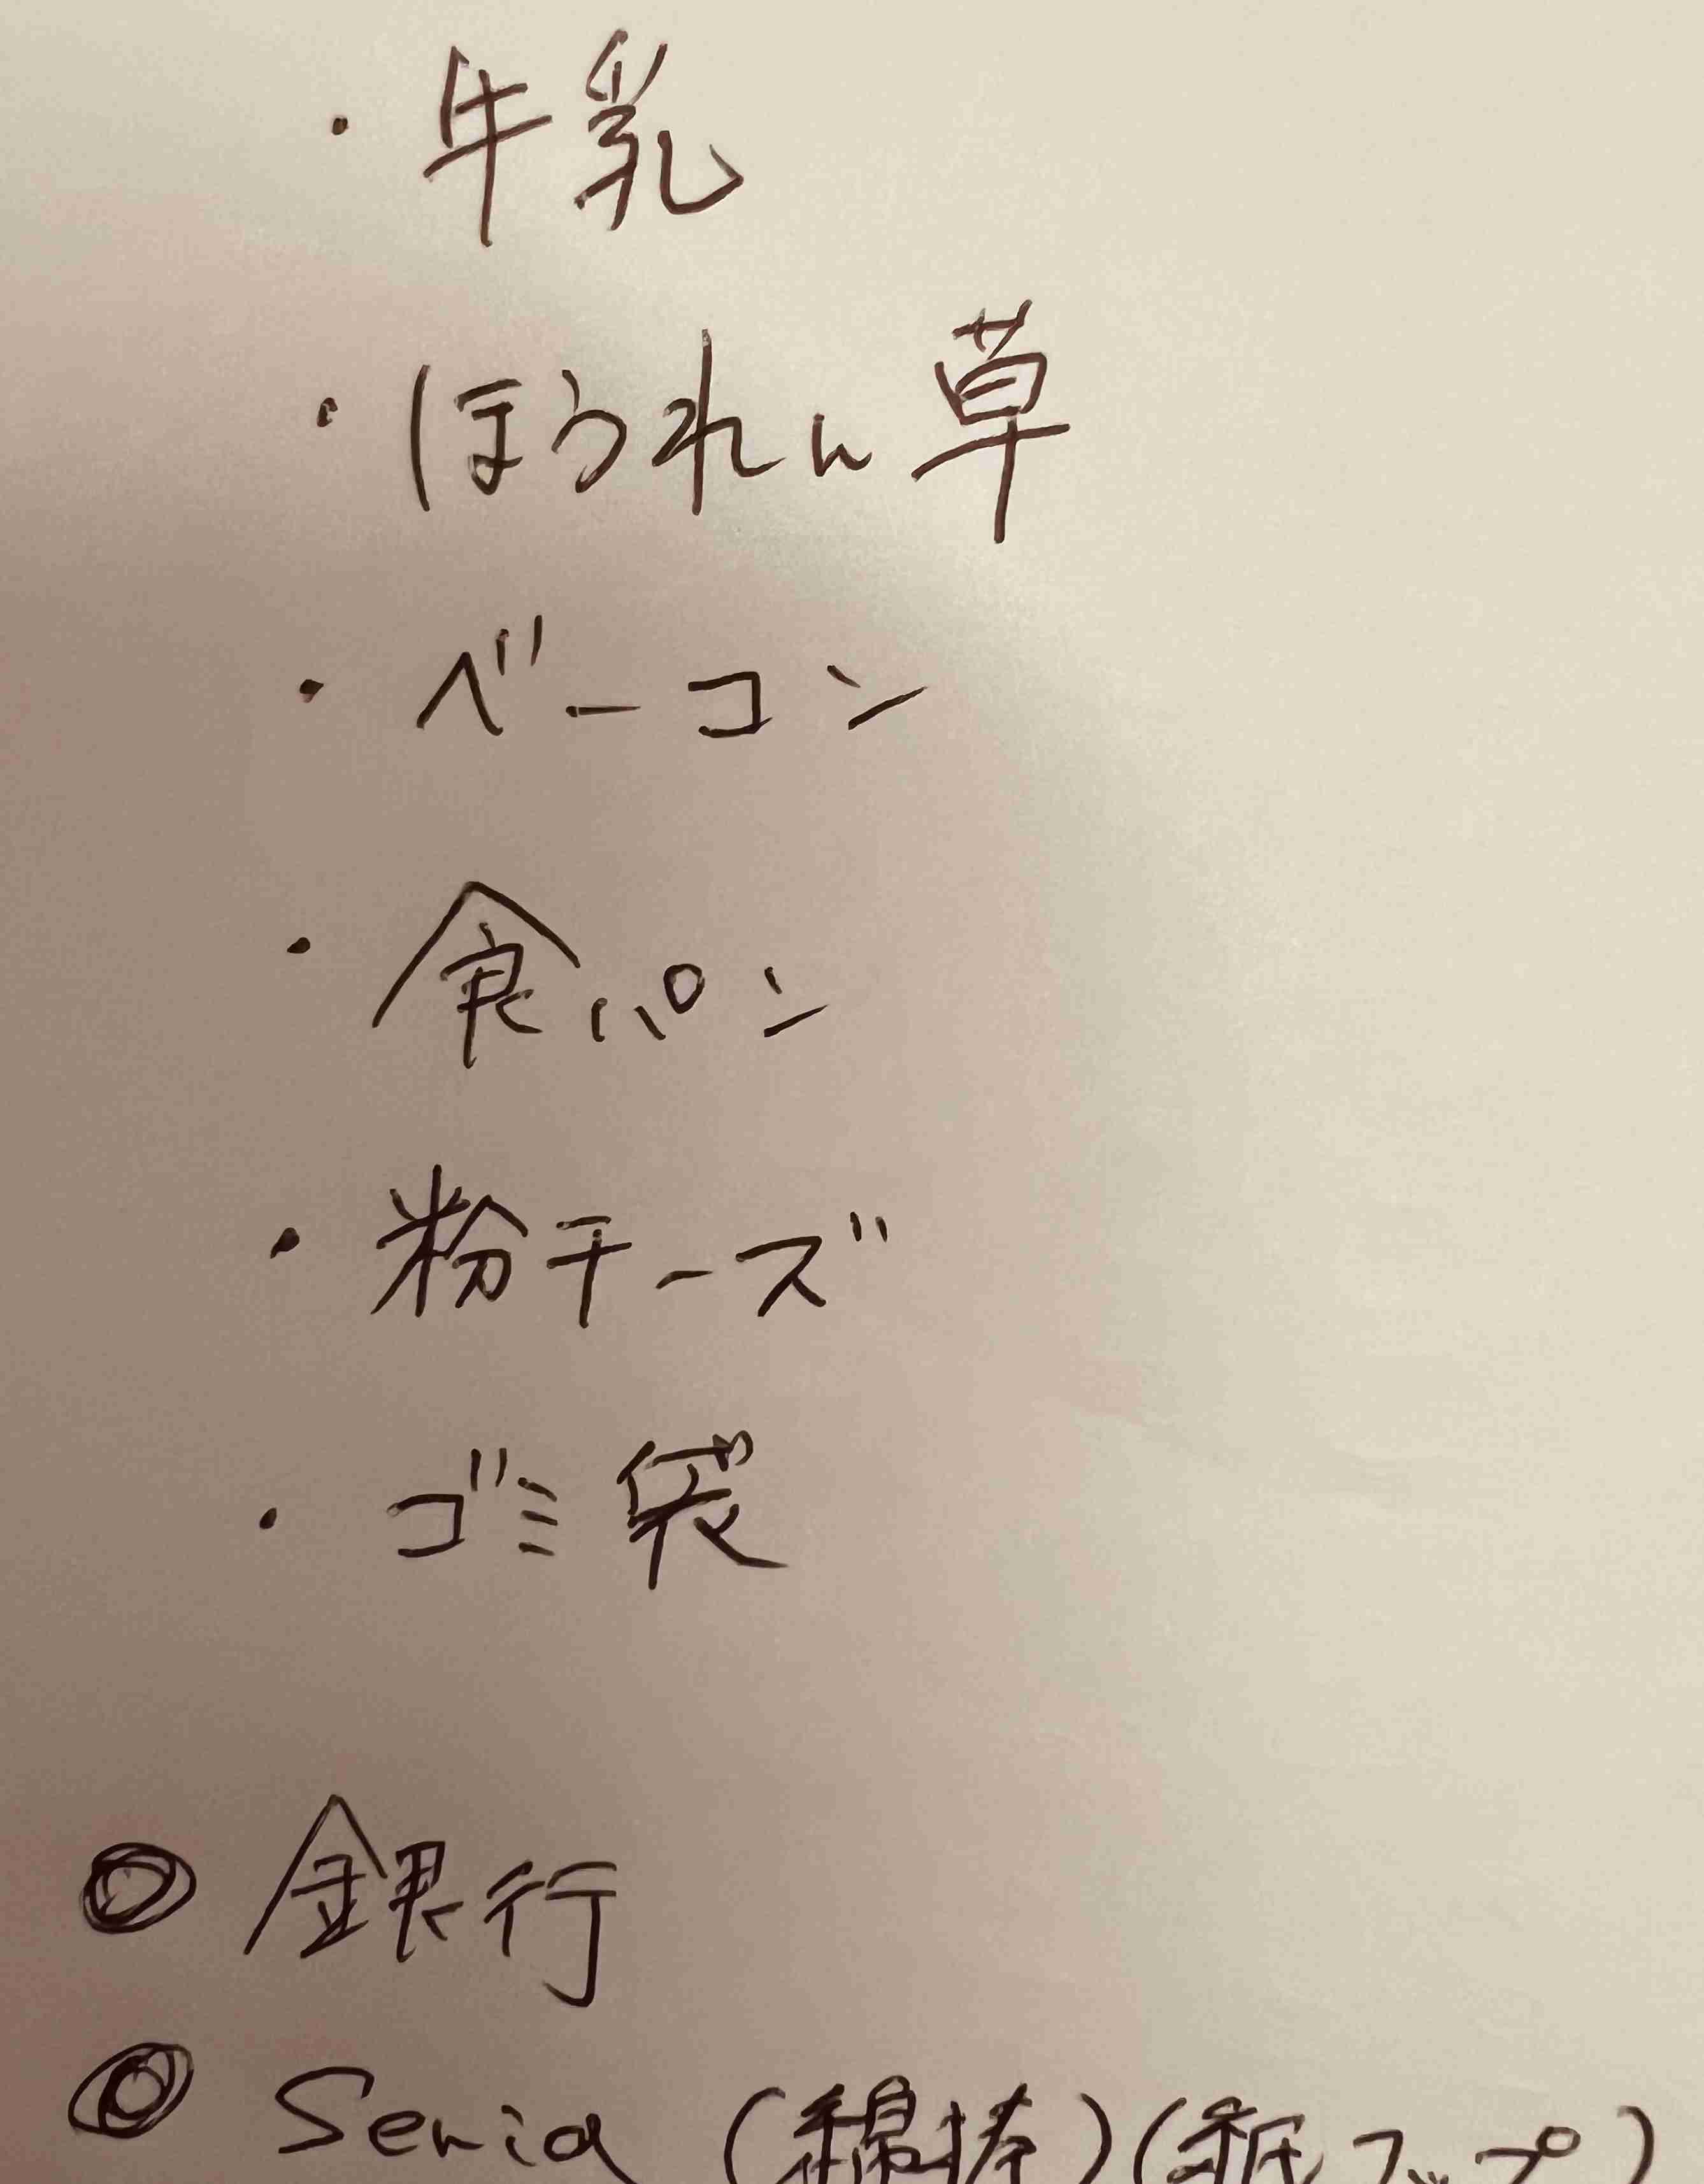 ・牛乳
・ほうれん草
・ベーコン
・食パン
・粉チーズ
・ゴミ袋
◎ 銀行
◎ Seria (綿棒)(紙コップ)